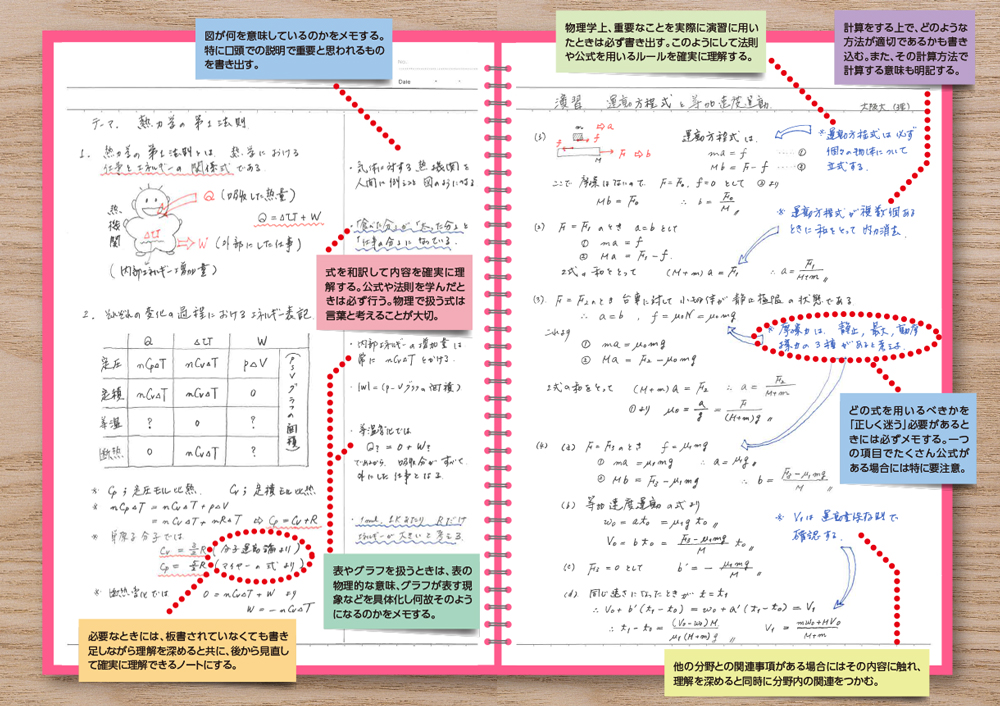 図が何を意味しているのかをメモする。
特に口頭での説明で重要と思われるもの
を書き出す。
No.
Date
テーマ. 熱力学の第1法則
1. 熱力学の第1法則とは、熱学における
仕事とエネルギーの関係式である.
熱機関
Q (吸収した熱量)
Q = ΔU + W
ΔU
W (外部にした仕事)
(内部エネルギー増加量)
・気体に対する熱機関を
人間に例えると図のようになる
・「食べた分」が「太った分」と
「仕事の分」になっている.
式を和訳して内容を確実に理
解する。公式や法則を学んだと
きは必ず行う。物理で扱う式は
言葉と考えることが大切。
2. それぞれの変化の過程におけるエネルギー表記.
Q ΔU W
定圧 nCpΔT nCvΔT pΔV
定積 nCvΔT nCvΔT 0
等温 ? 0 ?
断熱 0 nCvΔT ?
(P-Vグラフの面積)
・内部エネルギーの増加量は
常に nCvΔT とかける.
・|W| = (p-Vグラフの面積)
・等温変化では
Q? = 0 + W?
であるから、吸収分がすべて
外にした仕事となる.
※ Cp: 定圧モル比熱. Cv: 定積モル比熱
※ nCpΔT = nCvΔT + pΔV
= nCvΔT + nRΔT ⇨ Cp = Cv + R
※ 単原子分子では
Cv = 3/2 R (分子運動論より)
Cp = 5/2 R (マイヤーの式より)
※ 断熱変化では 0 = nCvΔT + W
W = -nCvΔT
・1mol, 1Kあたり Rだけ
エネルギーが大きいと考える.
表やグラフを扱うときは、表の
物理的な意味、グラフが表す現
象などを具体化し何故そのよう
になるのかをメモする。
必要なときには、板書されていなくても書き
足しながら理解を深めると共に、後から見直し
て確実に理解できるノートにする。
物理学上、重要なことを実際に演習に用い
たときは必ず書き出す。このようにして法則
や公式を用いるルールを確実に理解する。
計算をする上で、どのような
方法が適切であるかも書き
込む。また、その計算方法で
計算する意味も明記する。
演習 運動方程式と等加速度運動. 大阪大 (擇)
(1) m ⇨a
f f
M F0 ⇨b
運動方程式は
ma = f ・・・ ①
Mb = F - f ・・・ ②
※運動方程式は必ず
個々の物体について
立式する.
ここで 摩擦はないので F = F0, f = 0 として ②より
Mb = F0 ∴ b = F0/M
※ 運動方程式が複数個ある
ときに和をとって内力消去.
(2) F = F1のとき a = bとして
① ma = f
② Ma = F1 - f.
2式の和をとって (M+m)a = F1 ∴ a = F1/(M+m)
(3). F = F2のとき 台車に対して小物体が静止極限の状態である
∴ a = b , f = μ0N = μ0mg
これより
① ma = μ0mg
② Ma = F2 - μ0mg
※ 摩擦力は、静止, 最大, 動摩
擦力の3種があると考える.
2式の和をとって (M+m)a = F2 ∴ a = F2/(M+m)
①より μ0 = a/g = F2/((M+m)g)
どの式を用いるべきかを
「正しく迷う」必要があると
きには必ずメモする。一つ
の項目でたくさん公式が
ある場合には特に要注意。
(4) (a) F = F3のとき f = μ1mg
① ma = μ1mg ∴ a = μ1g
② Mb = F3 - μ1mg ∴ b = (F3 - μ1mg)/M
(b) 等加速度運動の式より
w0 = at0 = μ1g t0
V0 = bt0 = (F3 - μ1mg)/M t0
※ V1は運動量保存則で
確認する.
(c) F3 = 0として b' = - μ1mg/M
(d) 同じ速さになったときが t = t1
∴ V0 + b'(t1 - t0) = w0 + a'(t1 - t0) = V1
∴ t1 - t0 = (V0 - w0)M/(μ1(M+m)g) V1 = (mw0 + MV0)/(M+m)
他の分野との関連事項がある場合にはその内容に触れ、
理解を深めると同時に分野内の関連をつかむ。